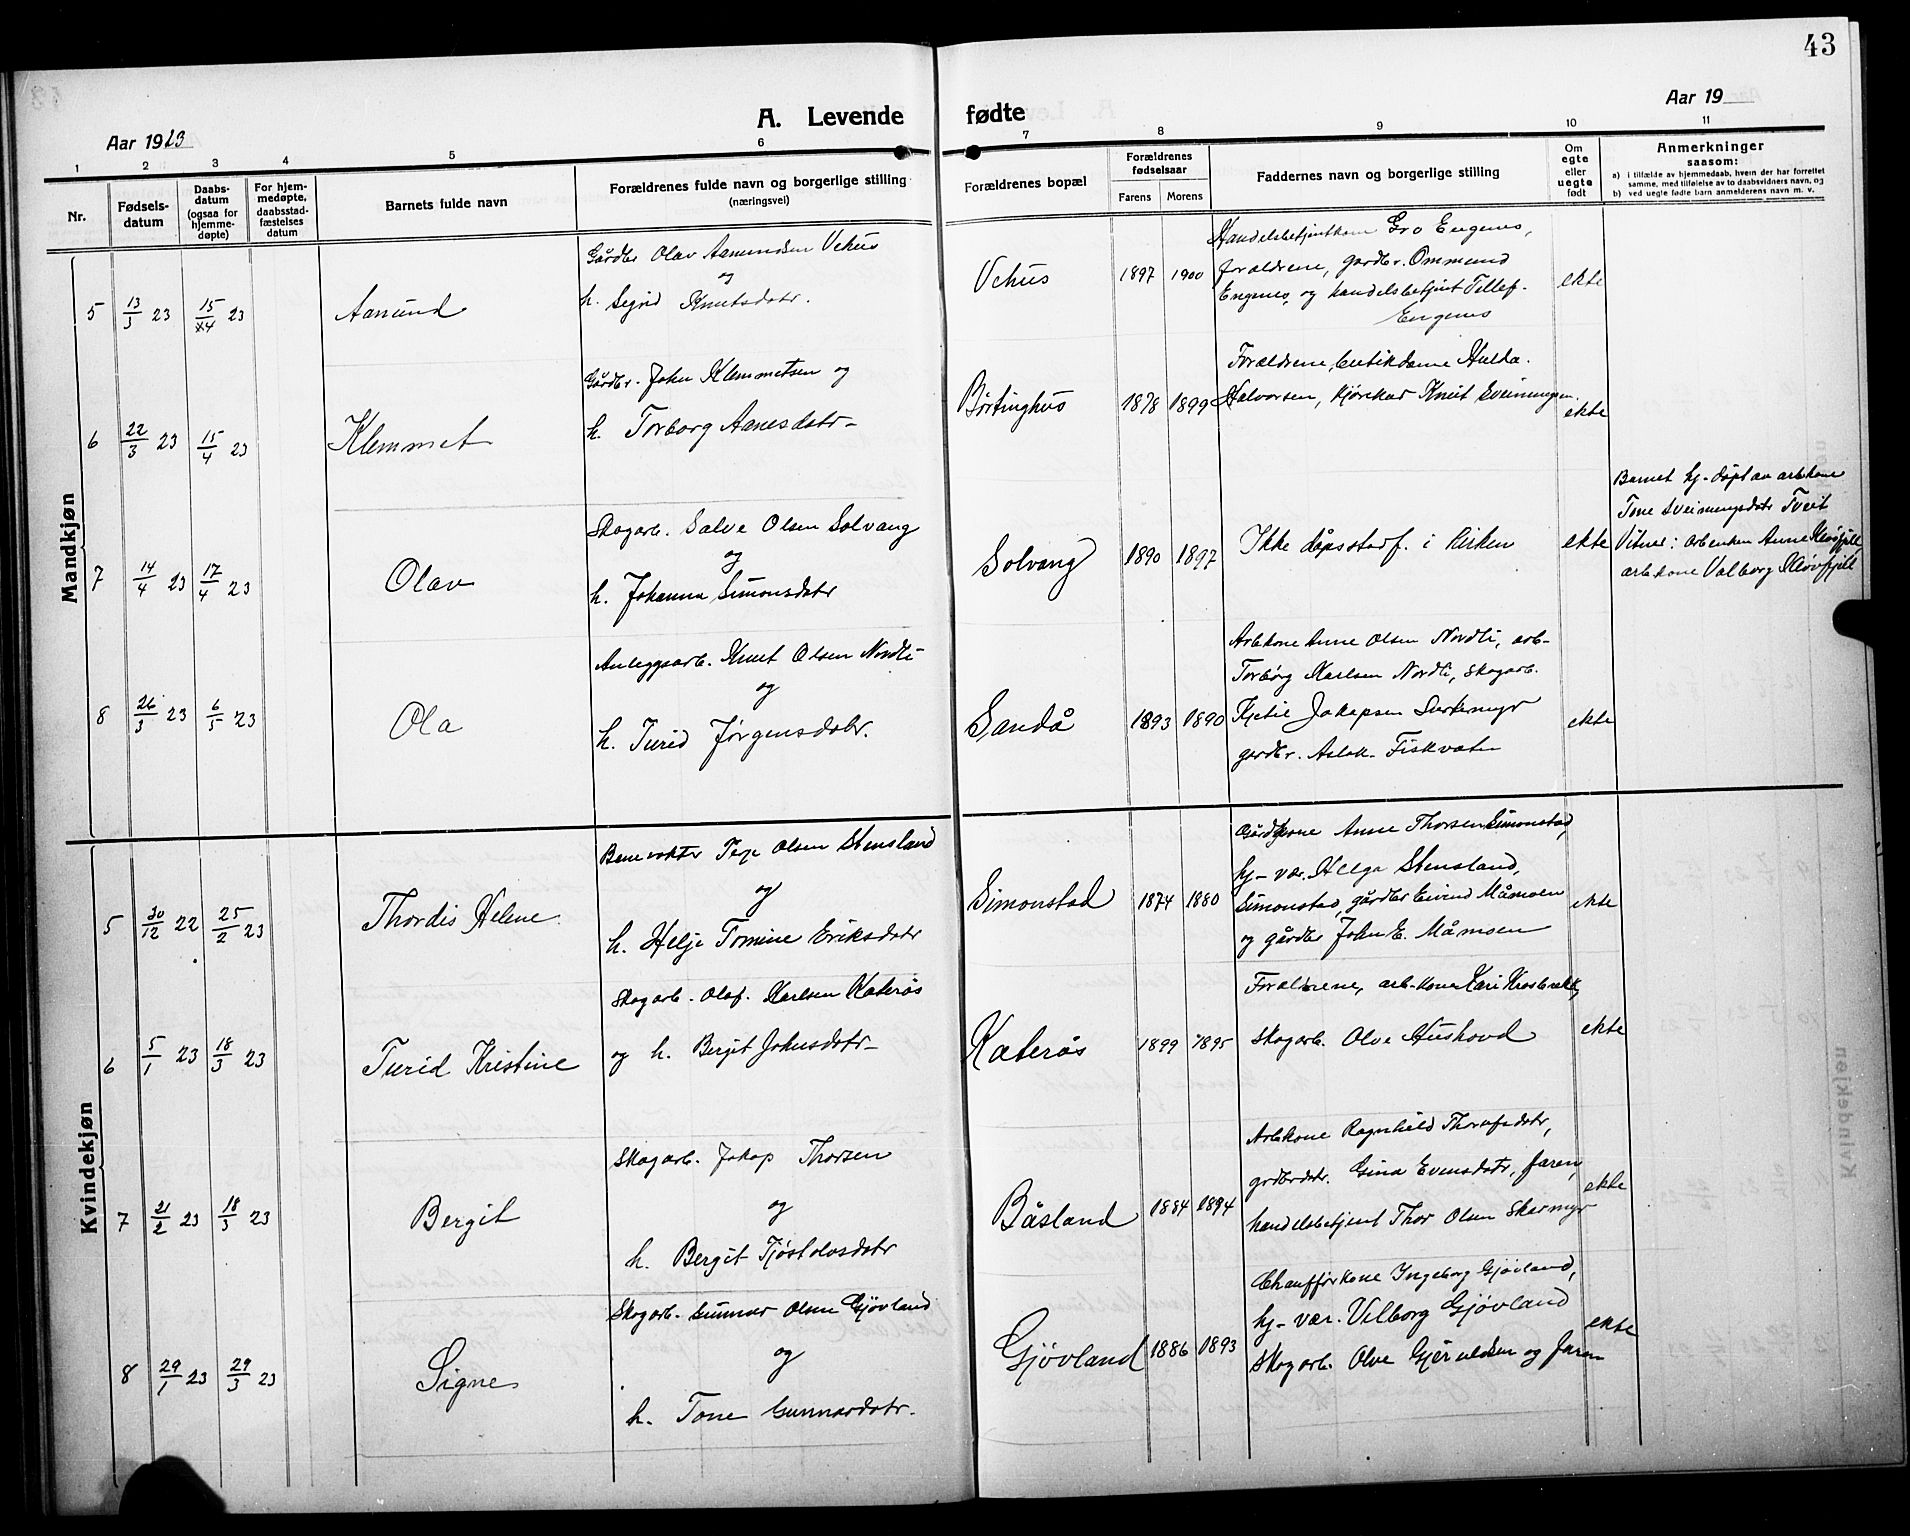 43
A. Levende fødte
Aar 1923
Aar 19
1 2 3 4 5 6 7 8 9 10 11
Nr.
Fødsels-
datum
Daabs-
datum
(ogsaa for
hjemme-
døpte)
For hjem-
medøpte,
daabsstad-
fæstelses
datum
Barnets fulde navn
Forældrenes fulde navn og borgerlige stilling
(næringsvei)
Forældrenes bopæl
Forældrenes
fødselsaar
Farens Morens
Faddernes navn og borgerlige stilling
Om
egte
eller
uegte
født
Anmerkninger
saasom:
a) i tilfælde av hjemmedaab, hvem der har forrettet
samme, med tilføielse av to daabsvidners navn, og
b) ved uegte fødte barn anmelderens navn m. v.
Mandkjøn
5 13/3 23 15/4 23 Aanund
Gårdbr Olav Aanundsen Vehus
og
h. Sigrid Knutsdatr.
Vehus 1897 1900
Handelsbetjentkone Gro Engenes,
foreldrene, gardbr. Ommund
Engenes og handelsbetjent Tellef
Engenes
ekte
6 22/3 23 15/4 23 Klemmet
Gårdbr. John Klemmetsen og
h. Torborg Aanesdatr
Børtinghus 1878 1899
Foreldrene, butikdame Hulda
Halvorsen, kjørekar Knut Sveinungsen.
ekte
7 14/4 23 17/4 23 Olav
Skogarb. Salve Olsen Solvang
og
h. Johanna Simonsdatr
Solvang 1890 1897
Ikke dåpsstadf. i kirken
ekte
Barnet hj-døpt av arbkone
Tone Sveinungsdatr Tveit
Vitner: arbenken Anne Kløvfjell,
arbkone Valborg Kløvfjell
8 26/3 23 6/5 23 Ola
Anleggsarb. Knut Olsen Nordli
og
h. Turid Jørgensdatr.
Sandå 1893 1890
Arbkone Anne Olsen Nordli, arb-
Torbørg Karlsen Nordli, skogarb.
Kjetil Jakopsen
gardbr. Aslak Fiskvatn
ekte
Kvindekjøn
5 30/12 22 25/2 23 Thordis Helene
Banevokter Terje Olsen Stensland
og
h. Helje Tomine Eriksdatr
Simonstad 1874 1880
Gårdkone Anne Thorsen Simonstad,
hj-vær. Helga Stensland,
Simonstad, gårdbr Eivind Måmoen
og gårdbr John E. Måmoen
ekte
6 5/1 23 18/3 23 Turid Kristine
Skogarb. Olaf Karlsen Katerås
og h. Bergit Johnsdatr
Katerås 1899 1895
Foreldrene, arb-kone Kari Krosbrekk,
skogarb. Olve Hushovd
ekte
7 21/2 23 18/3 23 Bergit
Skogarb. Jakop Thorsen
og
h. Bergit Tjøstolvsdatr
Båsland 1884 1894
Arbkone Ragnhild
grdbrdtr. Gina Evensdatr, faren,
handelsbetjent Thor Olsen Skarmyr
ekte
8 29/1 23 29/3 23 Signe
Skogarb. Gunnar Olsen Gjøvland
og
h. Tone Gunnardatr.
Gjøvland 1886 1893
Chaufførkone Ingeborg Gjøvland,
hj-vær. Vilborg Gjøvland
Skogarb. Olve og faren
ekte